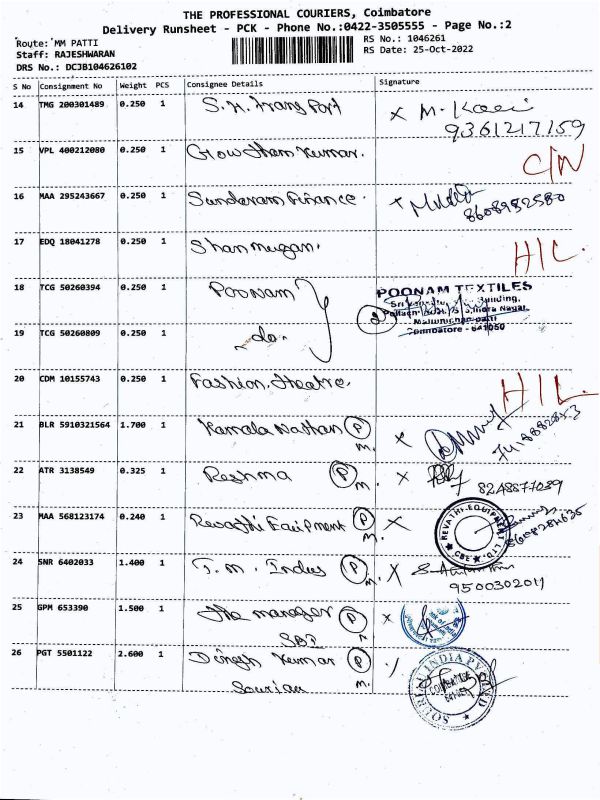 THE PROFESSIONAL COURIERS, Coimbatore
Delivery Runsheet - PCK - Phone No.:0422-3505555 - Page No.:2
Route: MM PATTI
Staff: RAJESHWARAN
DRS No.: DCJB104626102
RS No.: 1046261
RS Date: 25-Oct-2022
S No Consignment No Weight PCS Consignee Details Signature
14 TMG 200301489 0.250 1 S.N. Transport X M. Kaai
9361217159
15 VPL 400212080 0.250 1 Gowtham Kumar. C/N
16 MAA 295243667 0.250 1 Sundaram Finance. X
8608982580
17 EDQ 18041278 0.250 1 Shanmugan. HIC.
18 TCG 50260394 0.250 1 Poonam
POONAM TEXTILES
Building,
Indra Nagar,
Coimbatore - 641050
2
19 TCG 50260809 0.250 1 do.
20 CDM 10155743 0.250 1 Fashion. Theatre. HIL.
21 BLR 5910321564 1.700 1 Kamala Nathan P M. X
22 ATR 3138549 0.325 1 Reshma P M. X
8248677039
23 MAA 568123174 0.240 1 Revathi Equipment P M. X
REVATHI EQUIPMENT LTD.
CBE
8608284635
24 SNR 6402033 1.400 1 T.M. Indus P M. X
9500302011
25 GPM 653390 1.500 1 The manager P X
SBI
26 PGT 5501122 2.600 1 Dinesh Kumar P M.
Souriau
SOURIAU INDIA PVT LTD
COIMBATORE